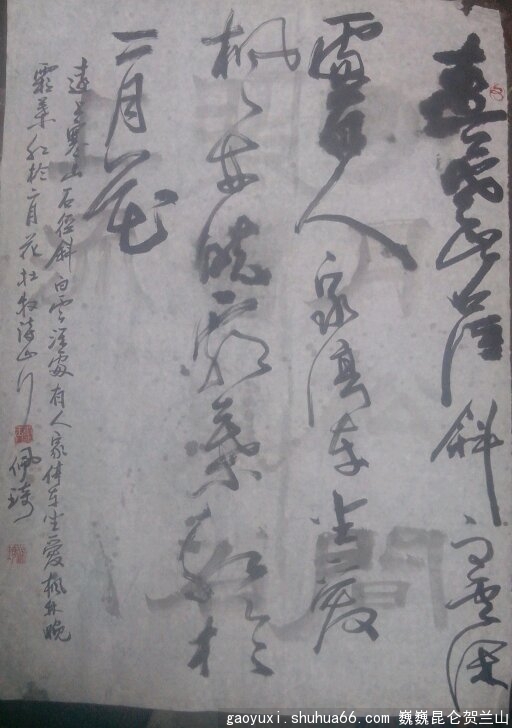 遠上寒山石徑斜白雲深
處有人家停车坐愛
楓林晚霜葉红於
二月花
遠上寒山石径斜白雲深處有人家停车坐愛楓林晚
霜葉红於二月花杜牧诗山行
佩琦
gaoyuxi.shuhua66.com 巍巍昆仑贺兰山